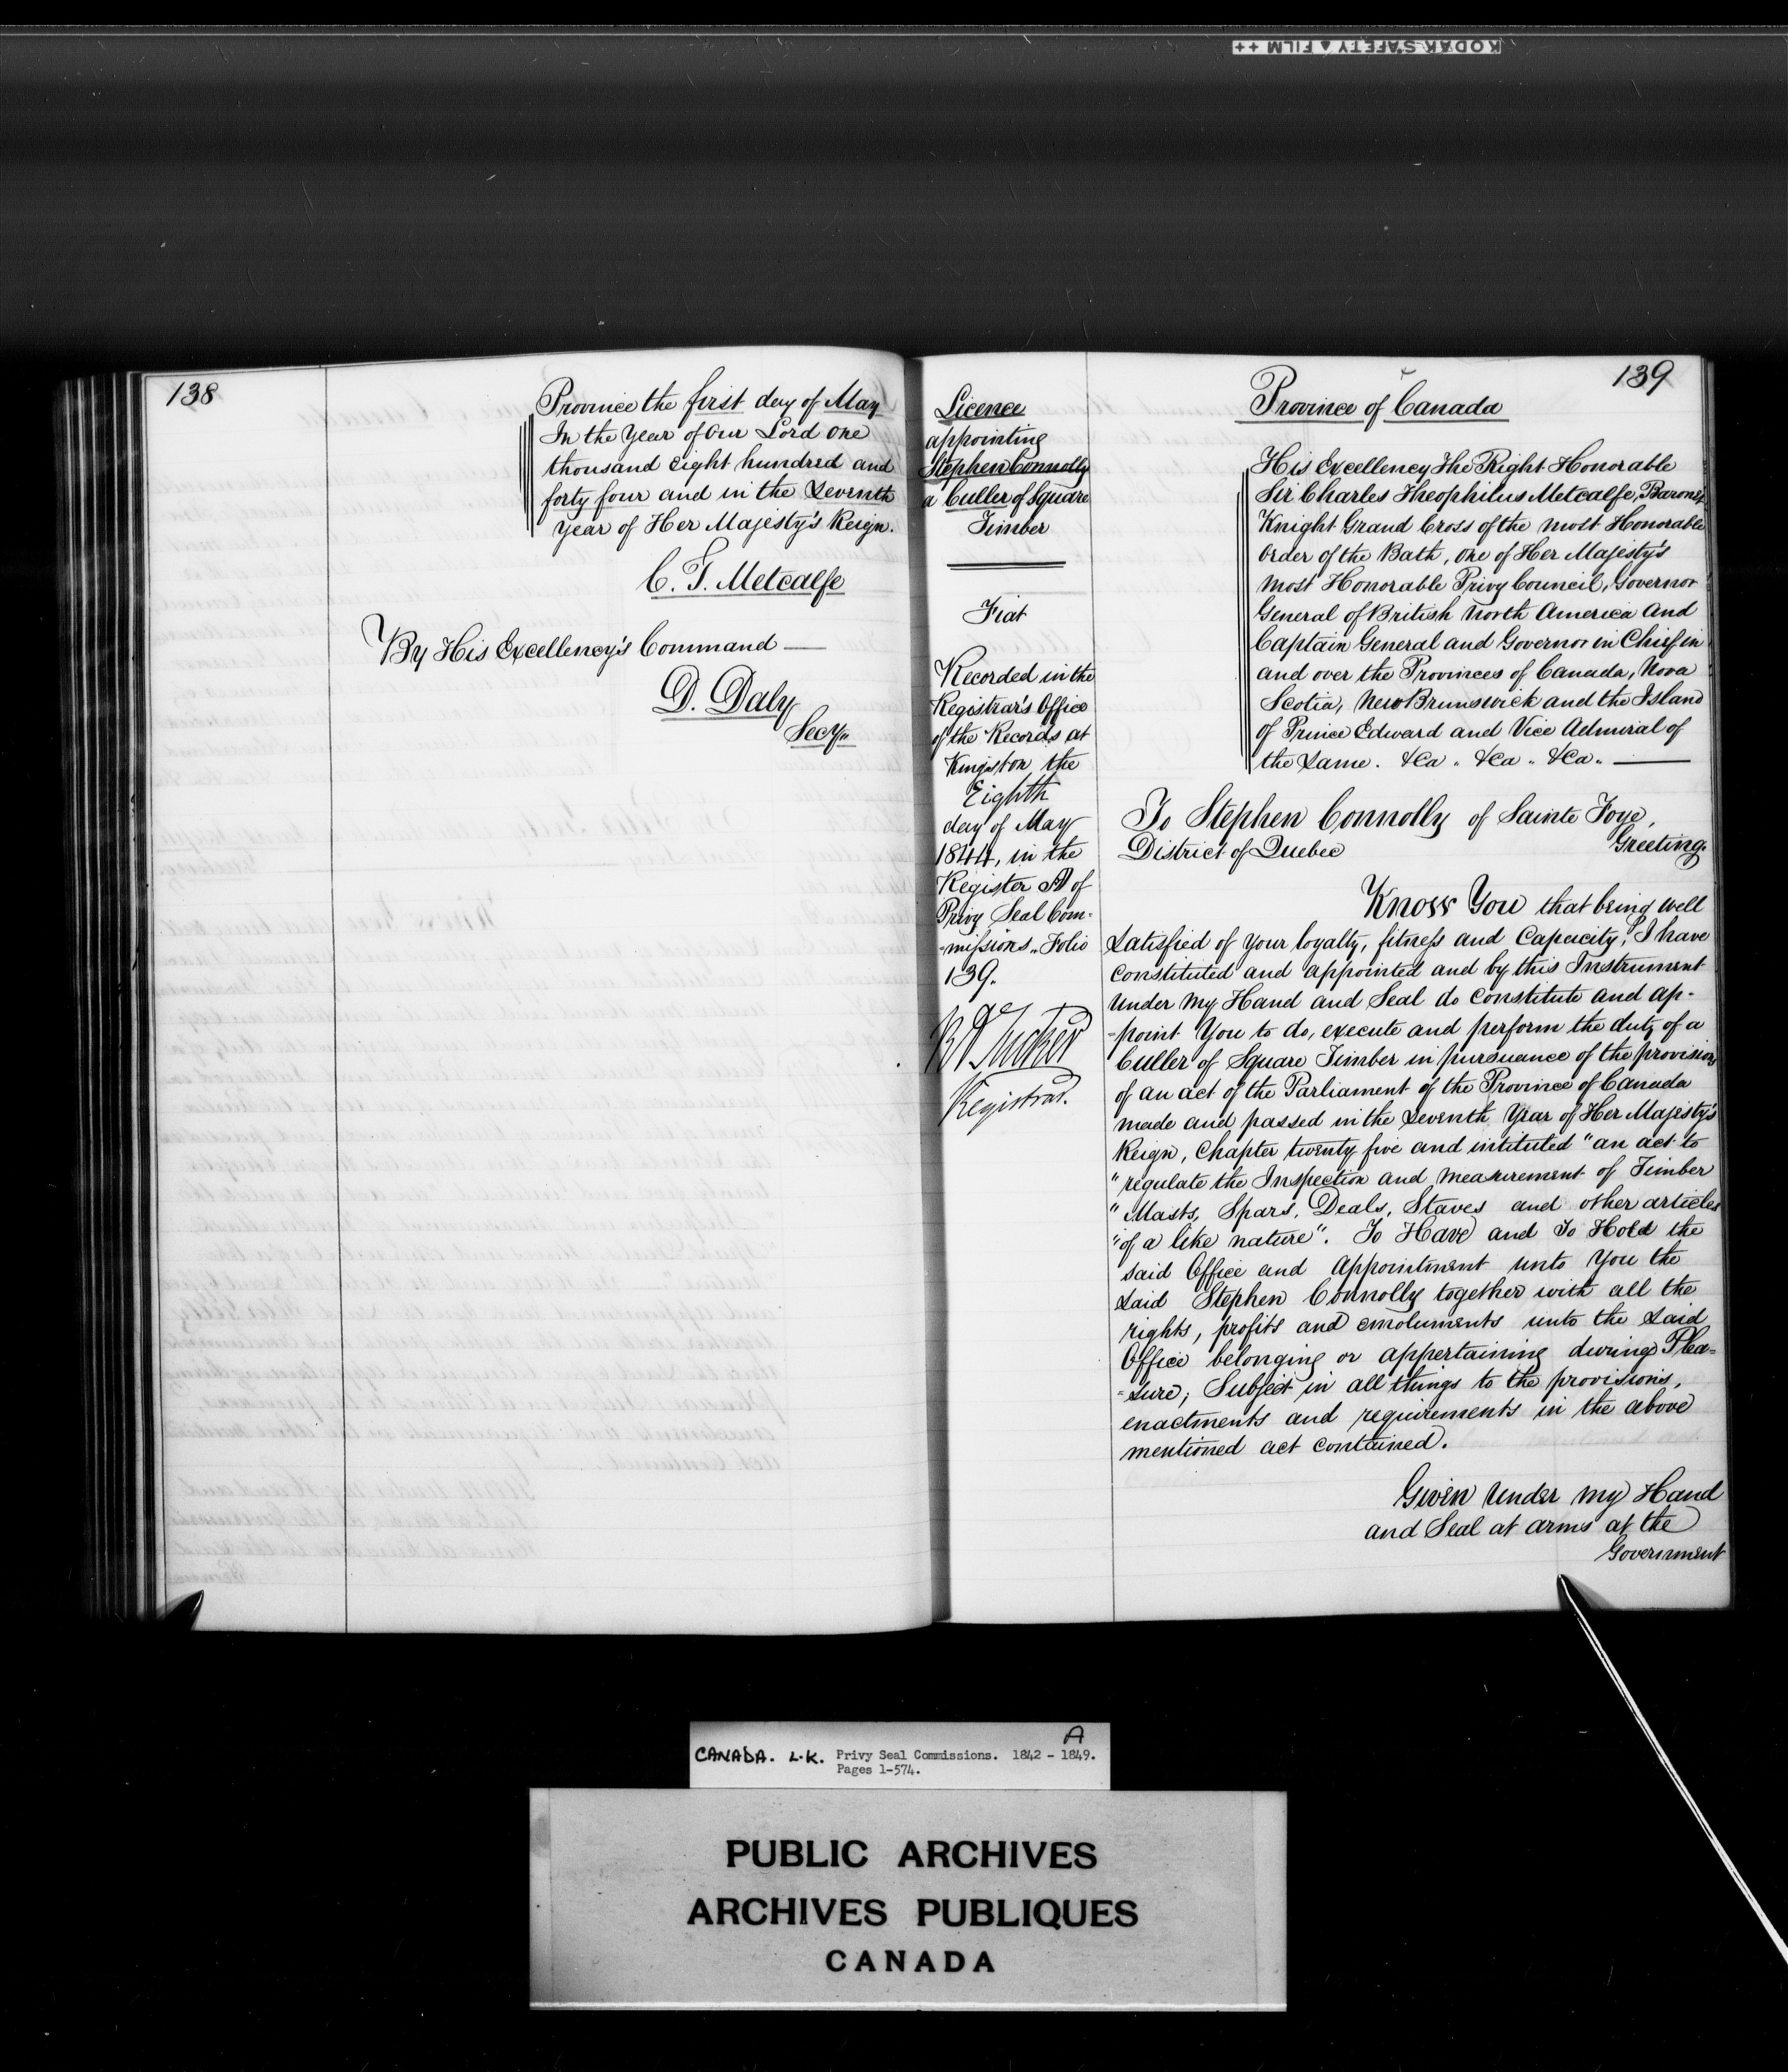 KODAK SAFETY FILM ++
138
Province the first day of May
In the Year of Our Lord one
thousand Eight hundred and
forty four and in the Seventh
Year of Her Majesty's Reign.
C. T. Metcalfe
By His Excellency's Command
D. Daly
Secy
139
Licence
appointing
Stephen Connolly
a Culler of Square
Timber
Fiat
Recorded in the
Registrar's Office
of the Records at
Kingston the
Eighth
day of May
1844, in the
Register A of
Privy Seal Com-
-missions. Folio
139.
R A Tucker
Registrar.
Province of Canada
His Excellency The Right Honorable
Sir Charles Theophilus Metcalfe, Baronet,
Knight Grand Cross of the most Honorable
Order of the Bath, one of Her Majesty's
most Honorable Privy Council, Governor
General of British North America and
Captain General and Governor in Chief in
and over the Provinces of Canada, Nova
Scotia, New Brunswick and the Island
of Prince Edward and Vice Admiral of
the Same. &Ca. &Ca. &Ca.
To Stephen Connolly of Sainte Foye,
District of Quebec Greeting.
Know You that being well
Satisfied of your loyalty, fitness and Capacity, I have
constituted and appointed and by this Instrument
under my Hand and Seal do Constitute and ap-
-point You to do, execute and perform the duty of a
Culler of Square Timber in pursuance of the provisions
of an act of the Parliament of the Province of Canada
made and passed in the Seventh Year of Her Majesty's
Reign, Chapter twenty five and intituled "an act to
"regulate the Inspection and measurement of Timber
"Masts, Spars, Deals, Staves and other articles
"of a like nature". To Have and To Hold the
said Office and Appointment unto You the
said Stephen Connolly together with all the
rights, profits and emoluments unto the said
Office belonging or appertaining during Plea-
-sure; Subject in all things to the provisions,
enactments and requirements in the above
mentioned act contained.
Given under my Hand
and Seal at arms at the
Government
CANADA. L.K. Privy Seal Commissions. A 1842 - 1849.
Pages 1-574.
PUBLIC ARCHIVES
ARCHIVES PUBLIQUES
CANADA